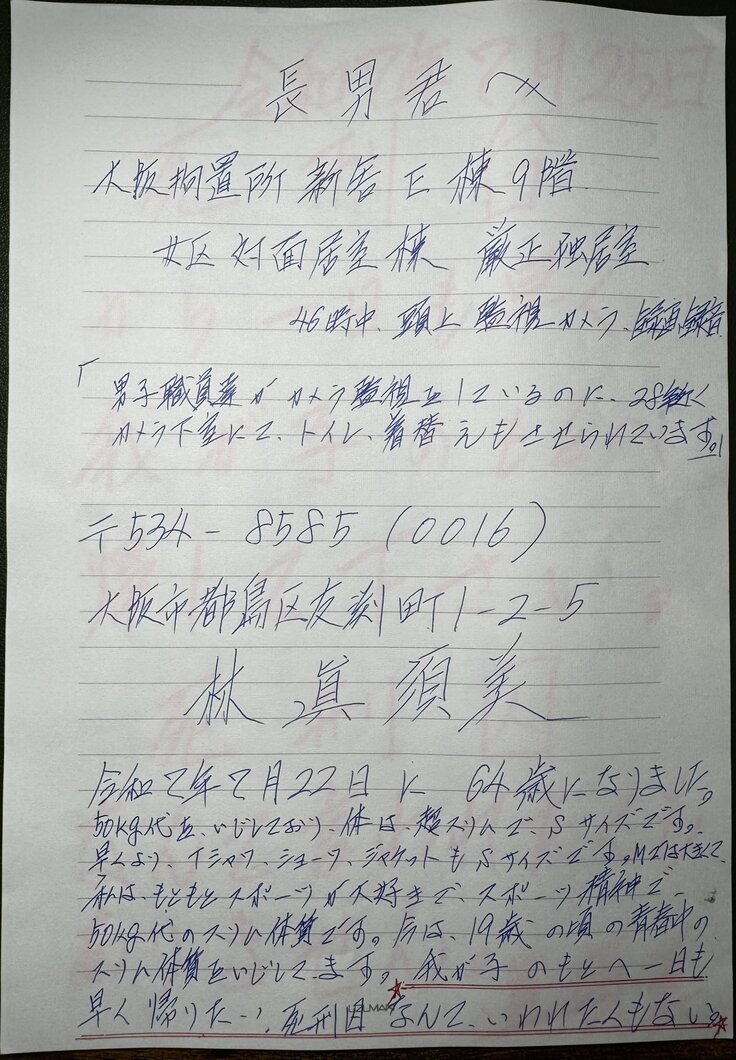 長男君へ
大阪拘置所 新舎E棟9階
女区対面居室棟 厳正独居室
46時中、頭上監視カメラ、録画録音
「男子職員達がカメラ監視をしているのに、28年近く
カメラ下室にて、トイレ、着替えもさせられています。」
〒534-8585(0016)
大阪市都島区友渕町1-2-5
林 眞須美
令和7年7月22日に 64歳になりました。
50kg代を、いじしており、体は、超スリムで、Sサイズです。
早くより、Tシャツ、ショーツ、ジャケットもSサイズです。Mでは大きくて、
私は、もともとスポーツが大好きで、スポーツ精神で、
50kg代のスリム体質です。今は、19歳の頃の青春中の
スリム体質をいじしてます。我が子のもとへ一日も
早く帰りたい、死刑囚なんて、いわれたくもない。